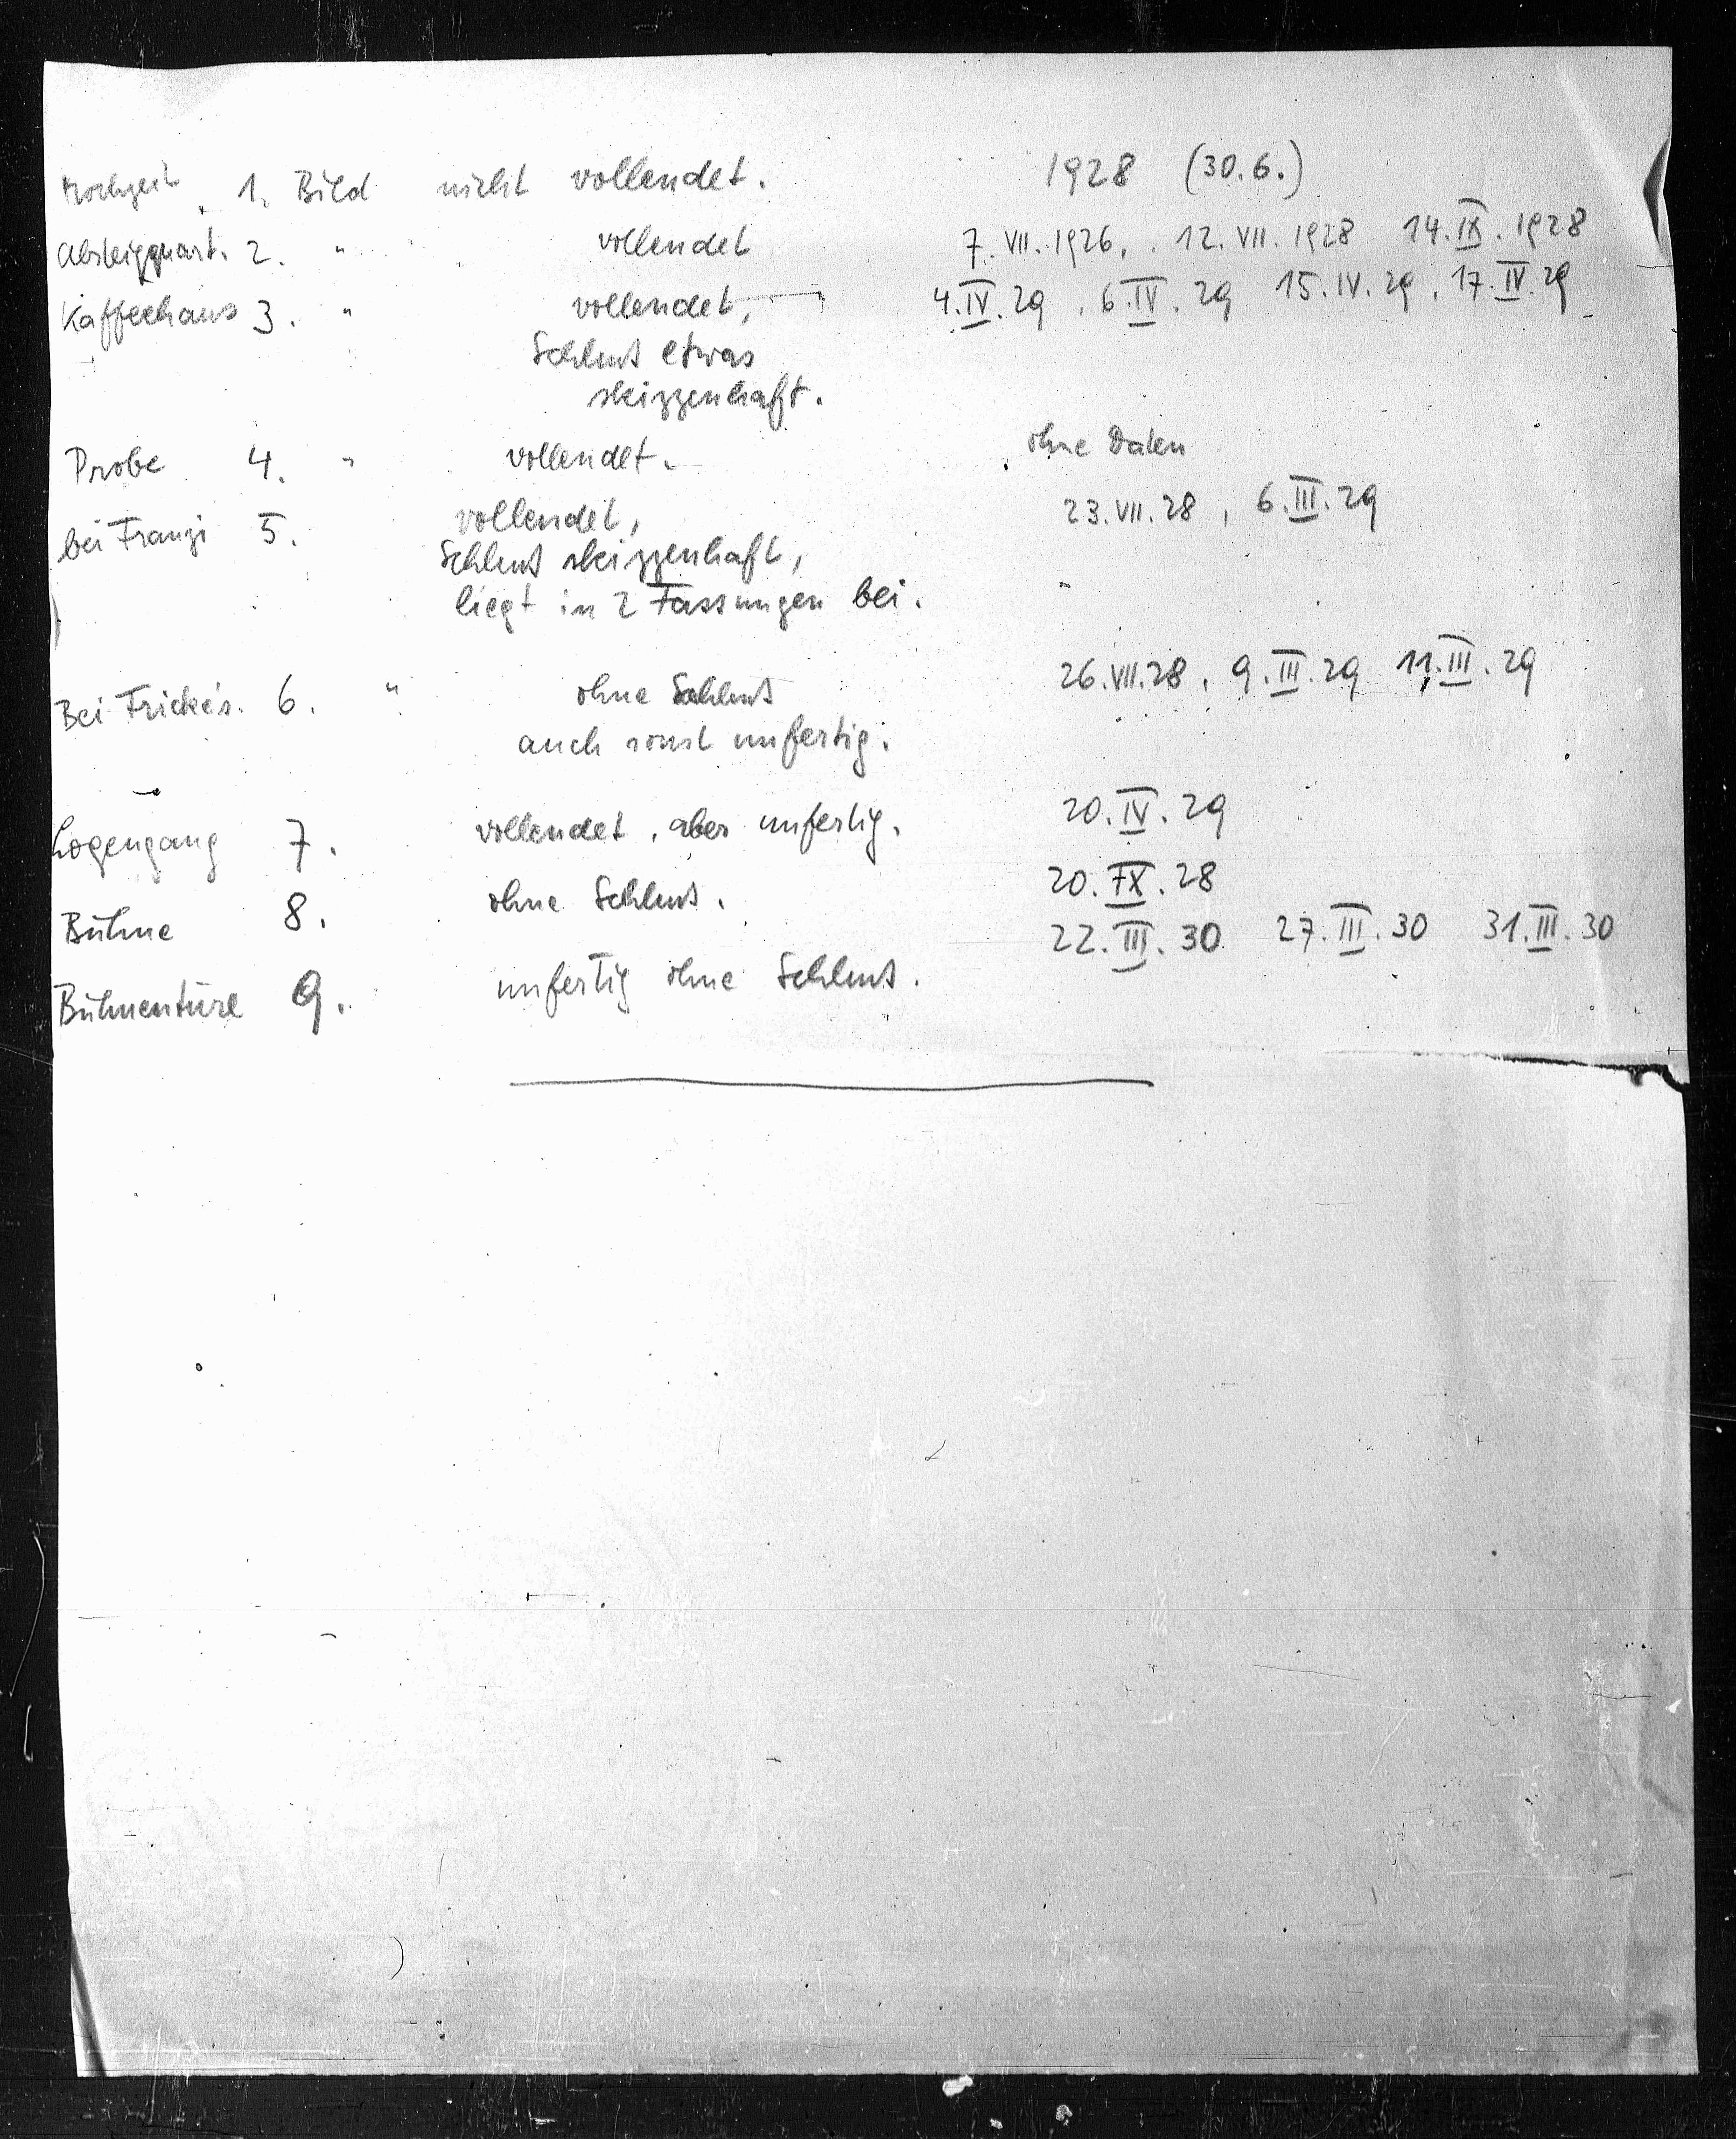 Hochzeit 1. Bild nicht vollendet. 1928 (30.6.)
Absteigquart. 2. " vollendet 7. VII. 1926, 12. VII. 1928 14. IX. 1928
Kaffeehaus 3. " vollendet, 4. IV. 29, 6. IV. 29 15. IV. 29, 17. IV. 29
Schluß etwas
skizzenhaft.
Probe 4. " vollendet. ohne Daten
bei Franzi 5. vollendet, 23. VII. 28, 6. III. 29
Schluß skizzenhaft,
liegt in 2 Fassungen bei.
Bei Fricke's. 6. " ohne Schluß 26. VII. 28, 9. III. 29 11. III. 29
auch sonst unfertig.
Logengang 7. vollendet, aber unfertig. 20. IV. 29
Bühne 8. ohne Schluß. 20. IX. 28
Bühnentüre 9. unfertig ohne Schluß. 22. III. 30 27. III. 30 31. III. 30